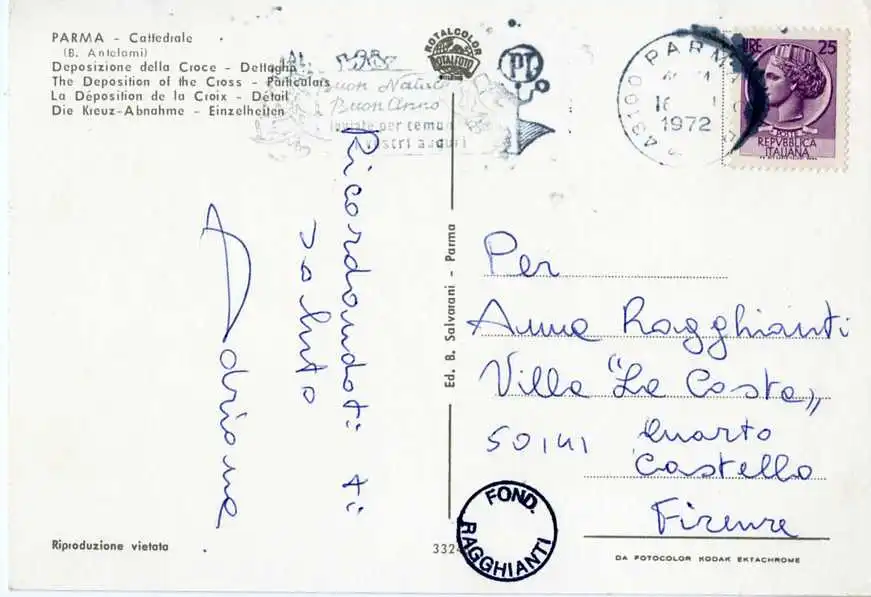 PARMA - Cattedrale
(B. Antelami)
Deposizione della Croce - Dettaglio
The Deposition of the Cross - Particulars
La Déposition de la Croix - Détail
Die Kreuz-Abnahme - Einzelheiten
ROTALCOLOR
ROTALFOTO
Buon Natale
Buon Anno
inviate per tempo
vostri auguri
PT
43100 PARMA
16
1972
LIRE 25
POSTE
REPVBBLICA
ITALIANA
Ricordandoti ti
saluto
Adriana
Ed. B. Salvarani - Parma
Per
Anna Ragghianti
Villa "La Costa"
50141 Quarto
Castello
Firenze
FOND.
RAGGHIANTI
Riproduzione vietata
3324
DA FOTOCOLOR KODAK EKTACHROME